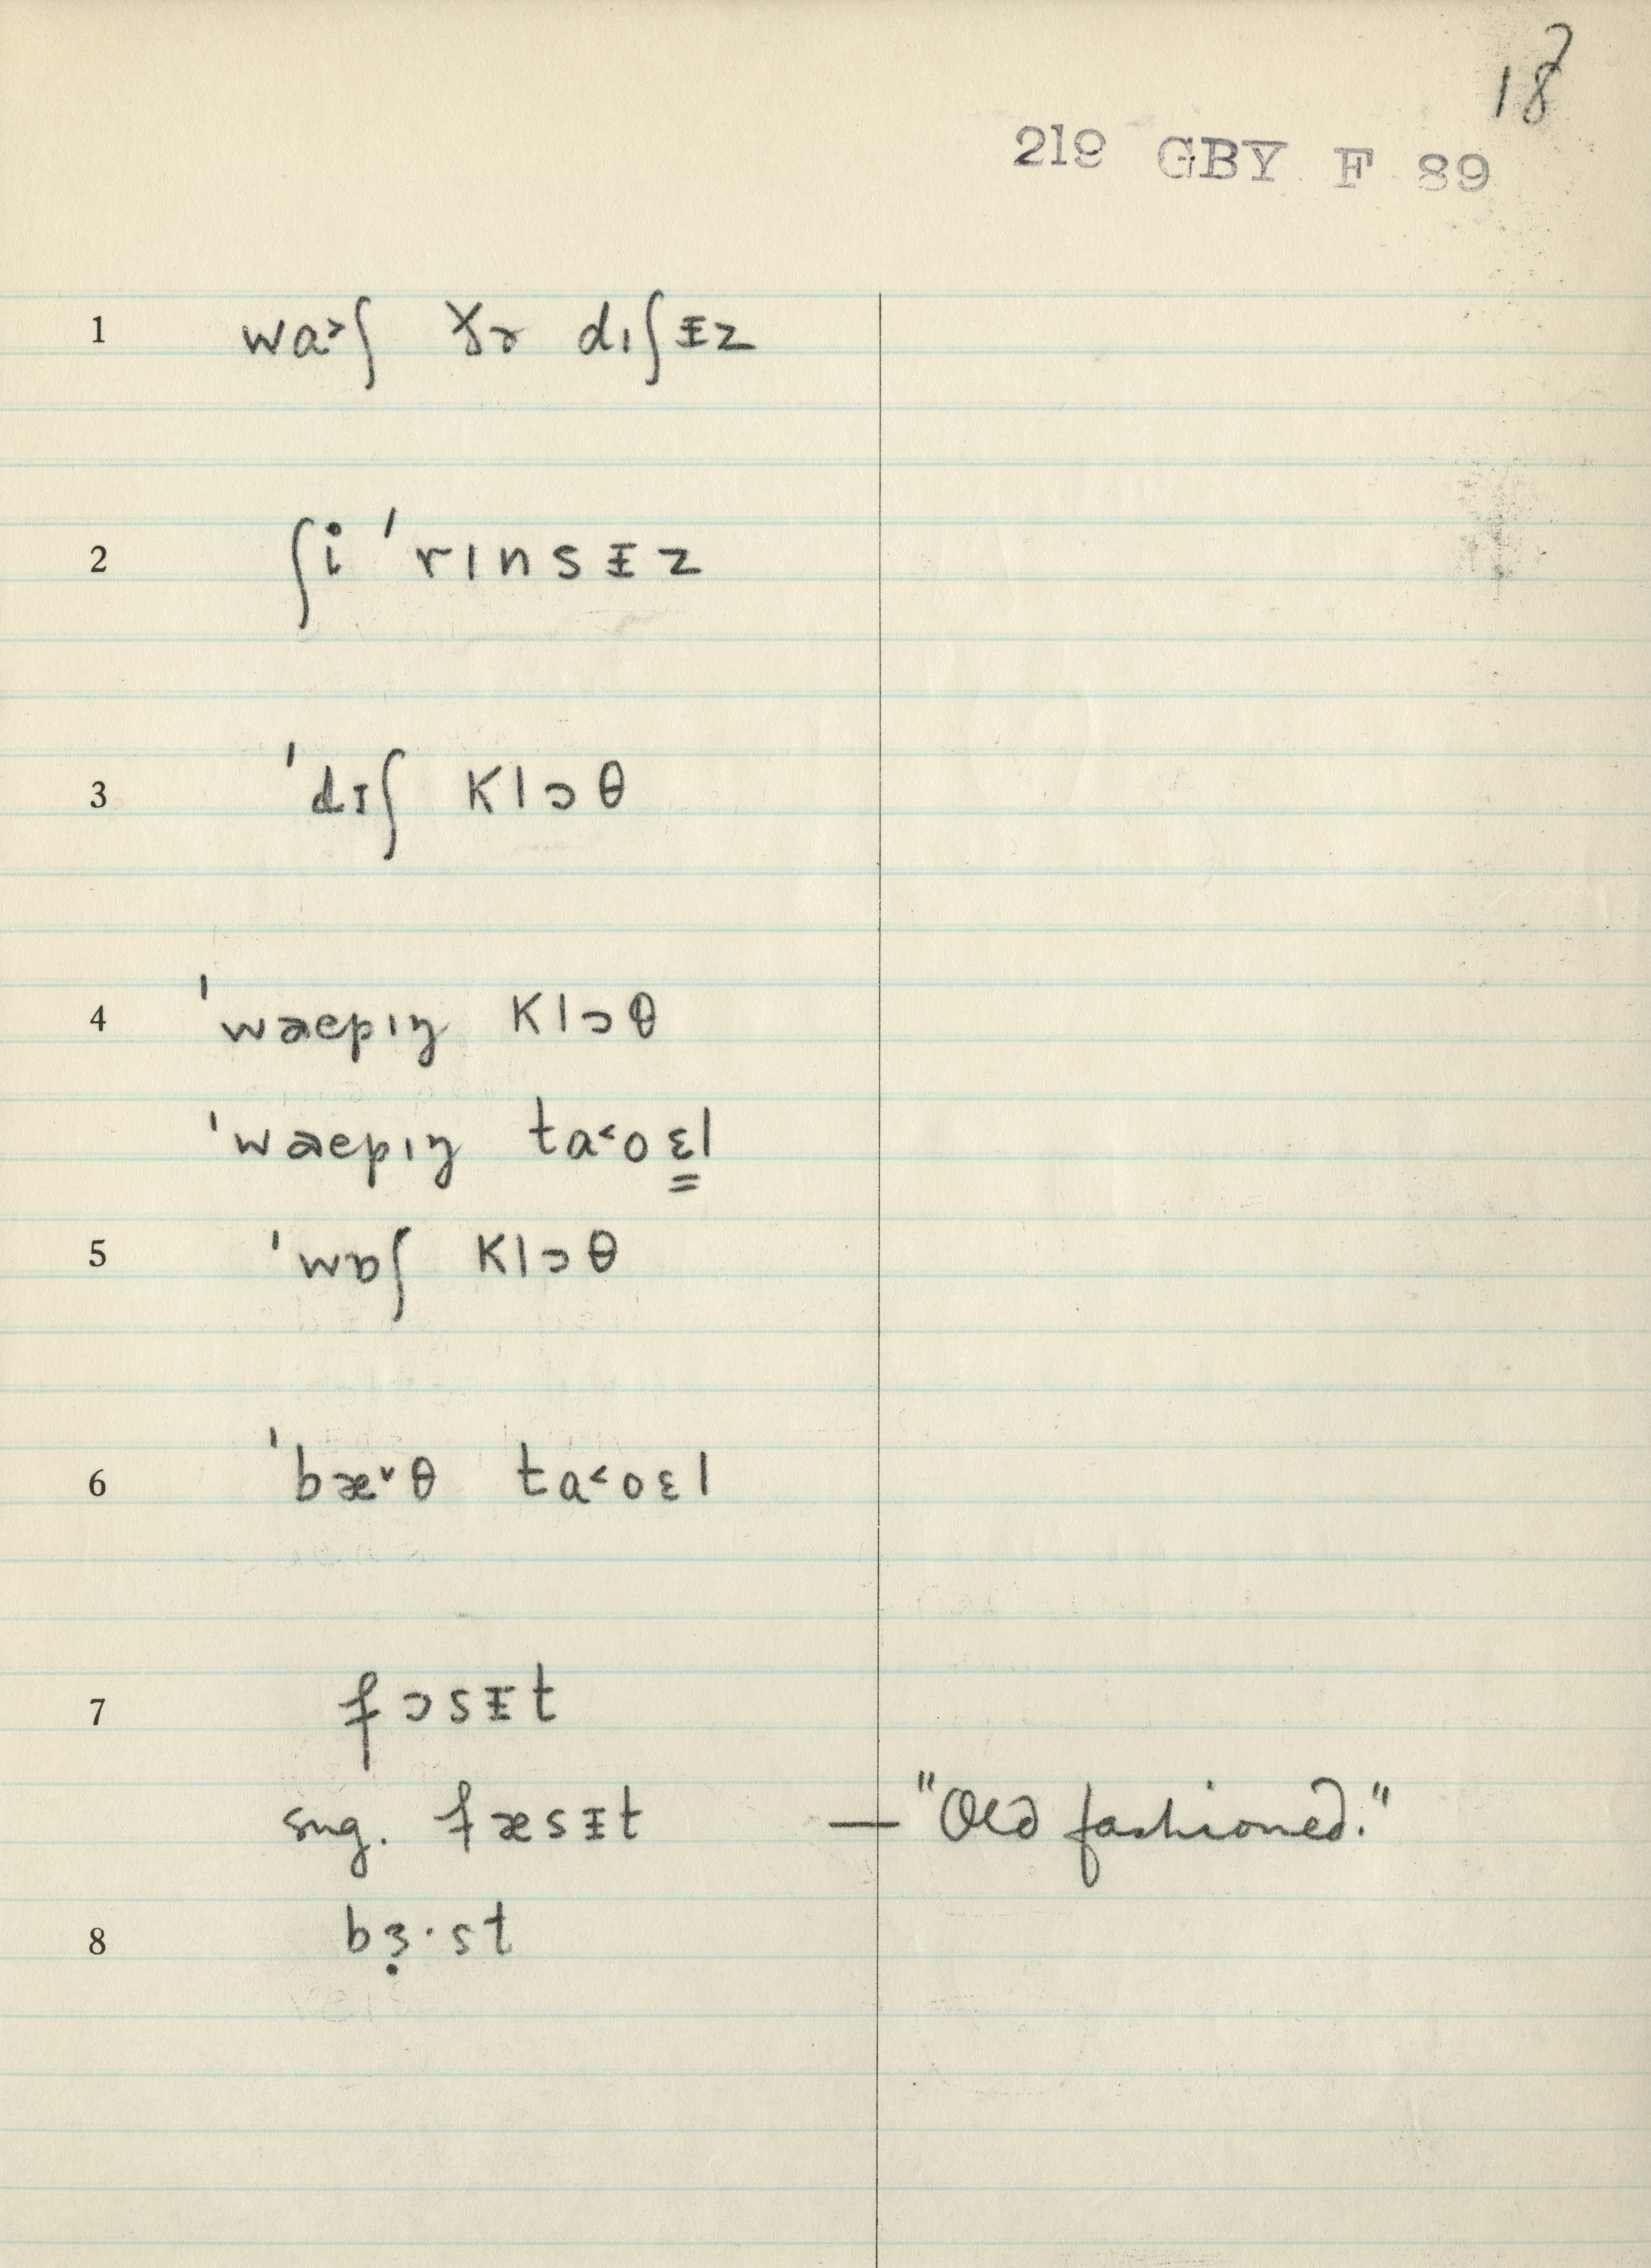 18
219 GBY F 89
1 wa˃ʃ ðɚ dıʃᵻz
2 ʃi 'rınsᵻz
3 'dɪʃ klɔθ
4 'wæpıŋ klɔθ
'wæpıŋ ta˂oɛ̳l
5 'wɒʃ klɔθ
6 'bæ˅θ ta˂oɛl
7 fɔsᵻt
sug. fæsᵻt — "Old fashioned."
8 bɜ̣·st